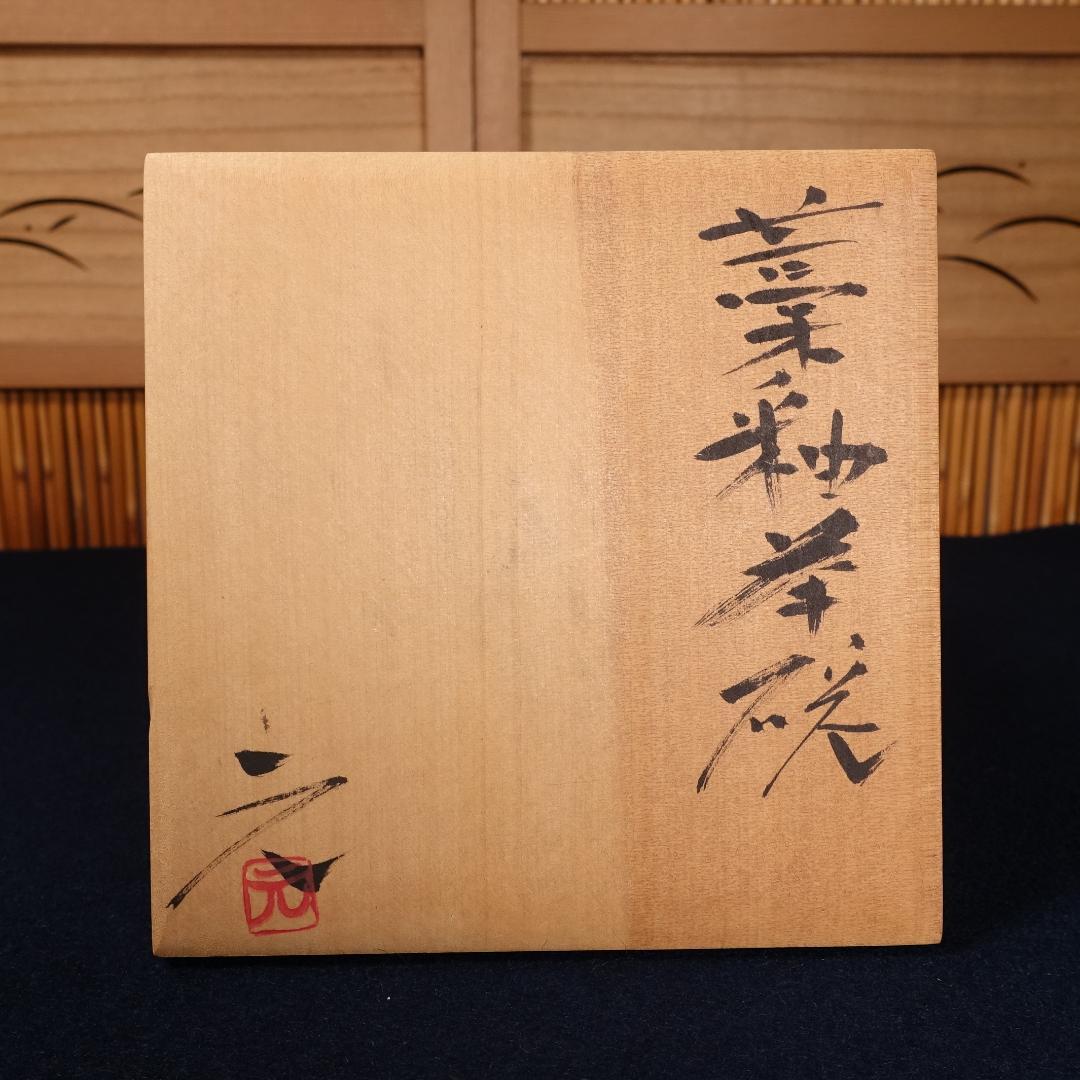 藁釉茶碗
元
元